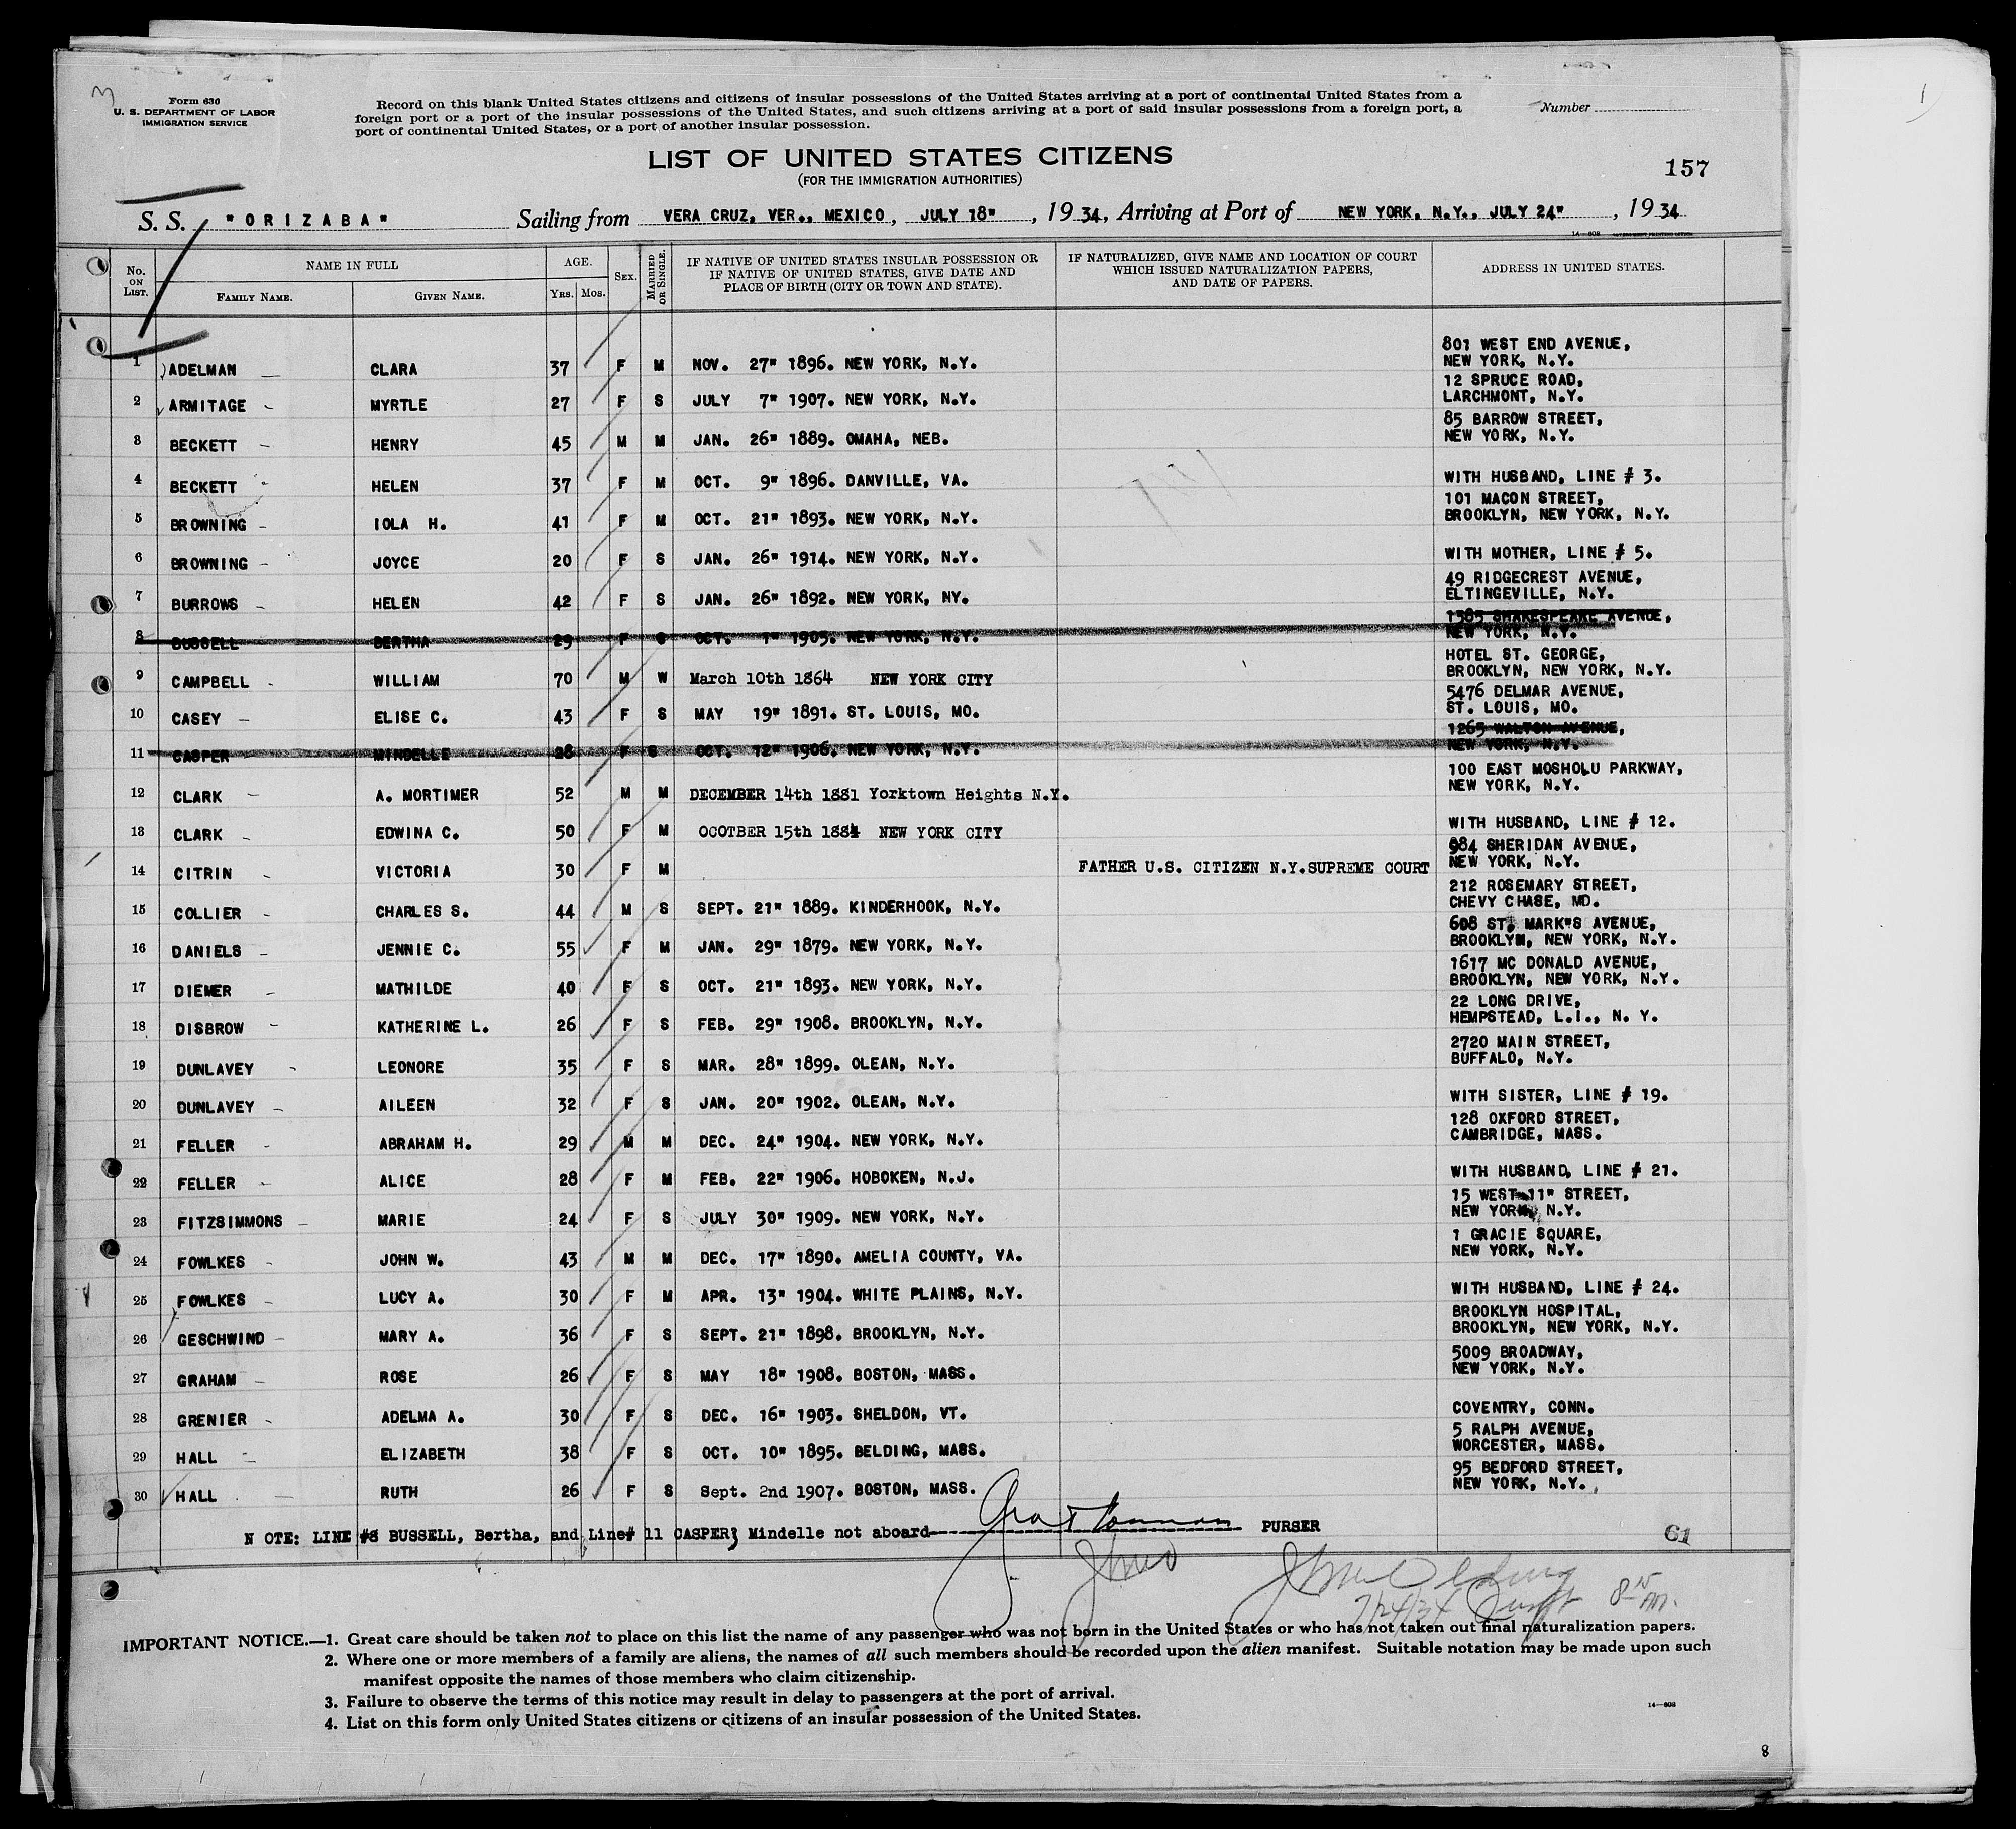 3
Form 636
U. S. DEPARTMENT OF LABOR
IMMIGRATION SERVICE
Record on this blank United States citizens and citizens of insular possessions of the United States arriving at a port of continental United States from a
foreign port or a port of the insular possessions of the United States, and such citizens arriving at a port of said insular possessions from a foreign port, a
port of continental United States, or a port of another insular possession.
Number
1
LIST OF UNITED STATES CITIZENS
(FOR THE IMMIGRATION AUTHORITIES)
157
S. S. "ORIZABA" Sailing from VERA CRUZ, VER., MEXICO, JULY 18", 1934, Arriving at Port of NEW YORK, N.Y., JULY 24", 1934
14—608
No. ON LIST. NAME IN FULL FAMILY NAME. GIVEN NAME. AGE. YRS. MOS. SEX. MARRIED OR SINGLE. IF NATIVE OF UNITED STATES INSULAR POSSESSION OR IF NATIVE OF UNITED STATES, GIVE DATE AND PLACE OF BIRTH (CITY OR TOWN AND STATE). IF NATURALIZED, GIVE NAME AND LOCATION OF COURT WHICH ISSUED NATURALIZATION PAPERS, AND DATE OF PAPERS. ADDRESS IN UNITED STATES.
1 ADELMAN CLARA 37 F M NOV. 27" 1896. NEW YORK, N.Y. 801 WEST END AVENUE, NEW YORK, N.Y.
2 ARMITAGE MYRTLE 27 F S JULY 7" 1907. NEW YORK, N.Y. 12 SPRUCE ROAD, LARCHMONT, N.Y.
3 BECKETT HENRY 45 M M JAN. 26" 1889. OMAHA, NEB. 85 BARROW STREET, NEW YORK, N.Y.
4 BECKETT HELEN 37 F M OCT. 9" 1896. DANVILLE, VA. WITH HUSBAND, LINE # 3.
5 BROWNING IOLA H. 41 F M OCT. 21" 1893. NEW YORK, N.Y. 101 MACON STREET, BROOKLYN, NEW YORK, N.Y.
6 BROWNING JOYCE 20 F S JAN. 26" 1914. NEW YORK, N.Y. WITH MOTHER, LINE # 5.
7 BURROWS HELEN 42 F S JAN. 26" 1892. NEW YORK, NY. 49 RIDGECREST AVENUE, ELTINGEVILLE, N.Y.
8 BUSSELL BERTHA 29 F S OCT. 1" 1905. NEW YORK, N.Y. 1385 SHAKESPEARE AVENUE, NEW YORK, N.Y.
9 CAMPBELL WILLIAM 70 M W March 10th 1864 NEW YORK CITY HOTEL ST. GEORGE, BROOKLYN, NEW YORK, N.Y.
10 CASEY ELISE C. 43 F S MAY 19" 1891. ST. LOUIS, MO. 5476 DELMAR AVENUE, ST. LOUIS, MO.
11 CASPER MINDELLE 28 F S OCT. 12" 1906. NEW YORK, N.Y. 1265 WALTON AVENUE, NEW YORK, N.Y.
12 CLARK A. MORTIMER 52 M M DECEMBER 14th 1881 Yorktown Heights N.Y. 100 EAST MOSHOLU PARKWAY, NEW YORK, N.Y.
13 CLARK EDWINA C. 50 F M OCOTBER 15th 1884 NEW YORK CITY WITH HUSBAND, LINE # 12.
14 CITRIN VICTORIA 30 F M FATHER U.S. CITIZEN N.Y.SUPREME COURT 984 SHERIDAN AVENUE, NEW YORK, N.Y.
15 COLLIER CHARLES S. 44 M S SEPT. 21" 1889. KINDERHOOK, N.Y. 212 ROSEMARY STREET, CHEVY CHASE, MD.
16 DANIELS JENNIE C. 55 F M JAN. 29" 1879. NEW YORK, N.Y. 608 ST. MARK"S AVENUE, BROOKLYN, NEW YORK, N.Y.
17 DIEMER MATHILDE 40 F S OCT. 21" 1893. NEW YORK, N.Y. 1617 MC DONALD AVENUE, BROOKLYN, NEW YORK, N.Y.
18 DISBROW KATHERINE L. 26 F S FEB. 29" 1908. BROOKLYN, N.Y. 22 LONG DRIVE, HEMPSTEAD, L.I., N. Y.
19 DUNLAVEY LEONORE 35 F S MAR. 28" 1899. OLEAN, N.Y. 2720 MAIN STREET, BUFFALO, N.Y.
20 DUNLAVEY AILEEN 32 F S JAN. 20" 1902. OLEAN, N.Y. WITH SISTER, LINE # 19.
21 FELLER ABRAHAM H. 29 M M DEC. 24" 1904. NEW YORK, N.Y. 128 OXFORD STREET, CAMBRIDGE, MASS.
22 FELLER ALICE 28 F M FEB. 22" 1906. HOBOKEN, N.J. WITH HUSBAND, LINE # 21.
23 FITZSIMMONS MARIE 24 F S JULY 30" 1909. NEW YORK, N.Y. 15 WEST 11" STREET, NEW YORK, N.Y.
24 FOWLKES JOHN W. 43 M M DEC. 17" 1890. AMELIA COUNTY, VA. 1 GRACIE SQUARE, NEW YORK, N.Y.
25 FOWLKES LUCY A. 30 F M APR. 13" 1904. WHITE PLAINS, N.Y. WITH HUSBAND, LINE # 24.
26 GESCHWIND MARY A. 36 F S SEPT. 21" 1898. BROOKLYN, N.Y. BROOKLYN HOSPITAL, BROOKLYN, NEW YORK, N.Y.
27 GRAHAM ROSE 26 F S MAY 18" 1908. BOSTON, MASS. 5009 BROADWAY, NEW YORK, N.Y.
28 GRENIER ADELMA A. 30 F S DEC. 16" 1903. SHELDON, VT. COVENTRY, CONN.
29 HALL ELIZABETH 38 F S OCT. 10" 1895. BELDING, MASS. 5 RALPH AVENUE, WORCESTER, MASS.
30 HALL RUTH 26 F S Sept. 2nd 1907. BOSTON, MASS. 95 BEDFORD STREET, NEW YORK, N.Y.
N OTE: LINE #8 BUSSELL, Bertha, and Line# 11 CASPER, Mindelle not aboard PURSER
61
7/24/34 8 15 AM.
IMPORTANT NOTICE.—1. Great care should be taken not to place on this list the name of any passenger who was not born in the United States or who has not taken out final naturalization papers.
2. Where one or more members of a family are aliens, the names of all such members should be recorded upon the alien manifest. Suitable notation may be made upon such
manifest opposite the names of those members who claim citizenship.
3. Failure to observe the terms of this notice may result in delay to passengers at the port of arrival.
4. List on this form only United States citizens or citizens of an insular possession of the United States.
14—608
8